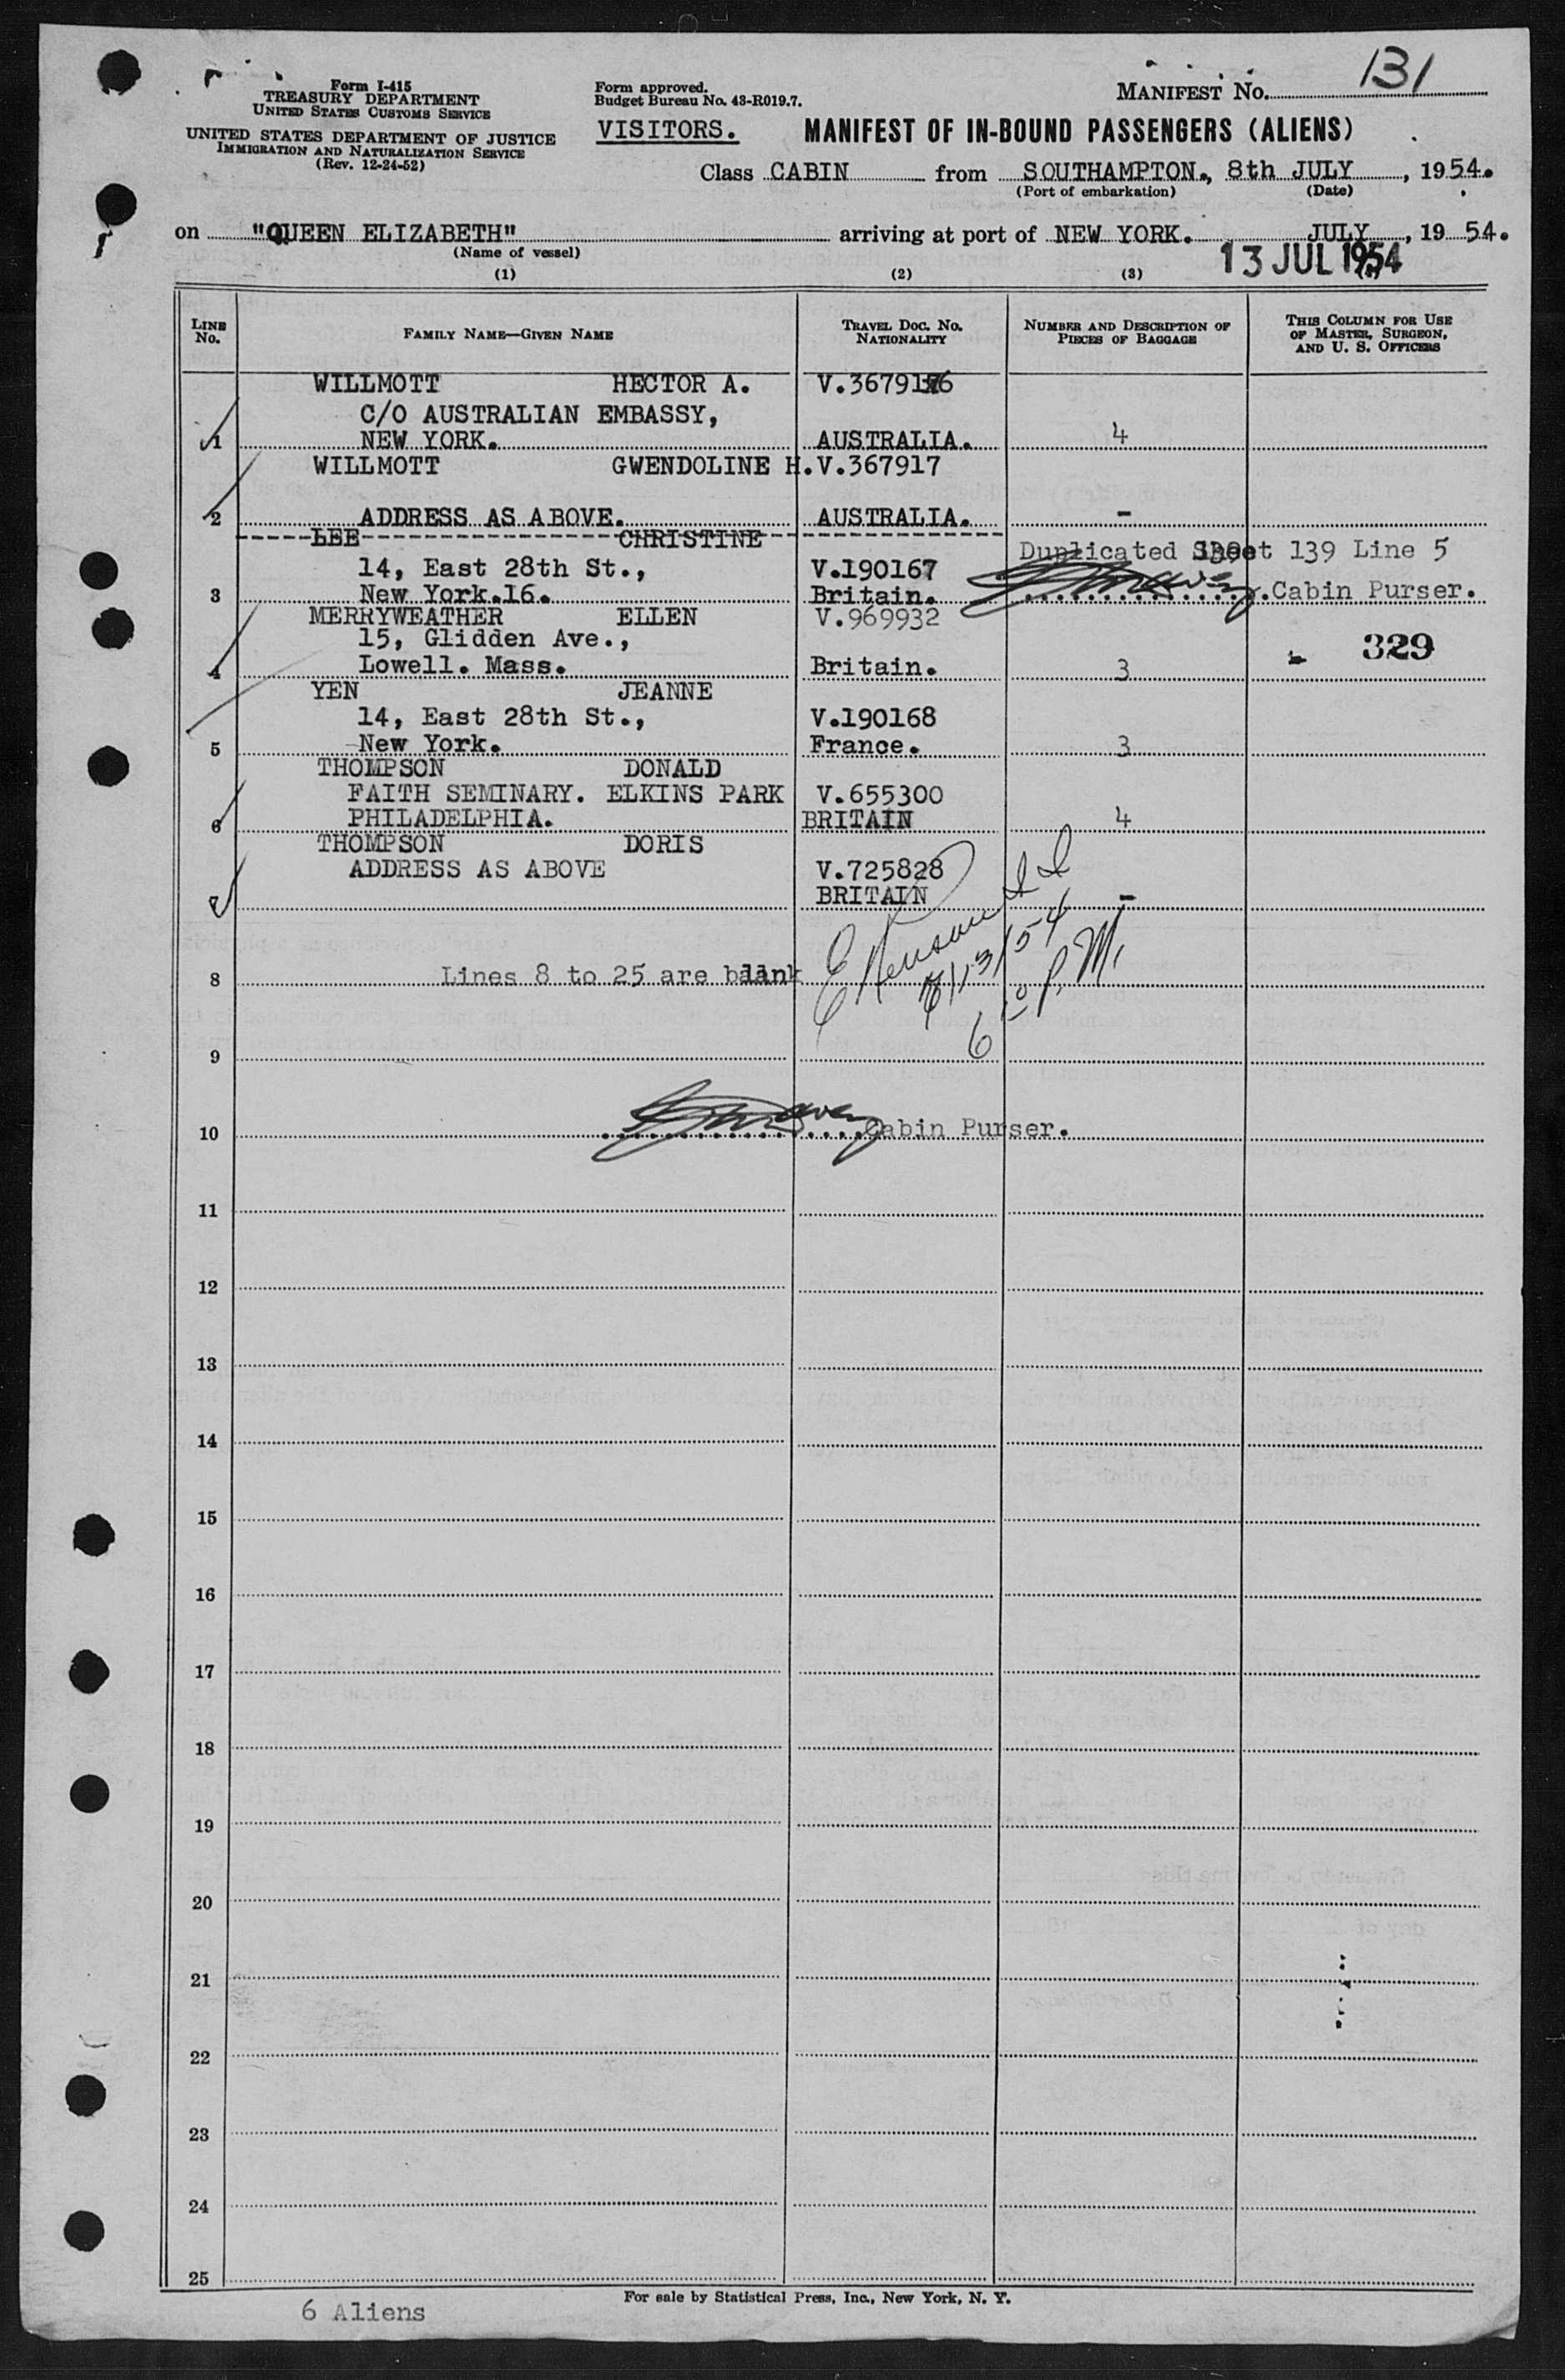 131
Form I-415
TREASURY DEPARTMENT
UNITED STATES CUSTOMS SERVICE
UNITED STATES DEPARTMENT OF JUSTICE
IMMIGRATION AND NATURALIZATION SERVICE
(Rev. 12-24-52)
Form approved.
Budget Bureau No. 43-R019.7.
MANIFEST No.
VISITORS. MANIFEST OF IN-BOUND PASSENGERS (ALIENS)
Class CABIN from SOUTHAMPTON., 8th JULY, 1954.
(Port of embarkation) (Date)
on "QUEEN ELIZABETH" arriving at port of NEW YORK. JULY, 1954.
(Name of vessel) 13 JUL 1954
(1) (2) (3)
LINE No. FAMILY NAME—GIVEN NAME TRAVEL DOC. NO. NATIONALITY NUMBER AND DESCRIPTION OF PIECES OF BAGGAGE THIS COLUMN FOR USE OF MASTER, SURGEON, AND U. S. OFFICERS
WILLMOTT HECTOR A. V.367916
C/O AUSTRALIAN EMBASSY,
1 NEW YORK. AUSTRALIA. 4
WILLMOTT GWENDOLINE H. V.367917
2 ADDRESS AS ABOVE. AUSTRALIA. -
LEE CHRISTINE
Duplicated Sheet 139 Line 5
14, East 28th St., V.190167
3 New York.16. Britain. Cabin Purser.
MERRYWEATHER ELLEN V.969932
15, Glidden Ave., 329
4 Lowell. Mass. Britain. 3
YEN JEANNE
14, East 28th St., V.190168
5 New York. France. 3
THOMPSON DONALD
FAITH SEMINARY. ELKINS PARK V.655300
6 PHILADELPHIA. BRITAIN 4
THOMPSON DORIS
ADDRESS AS ABOVE V.725828
7 BRITAIN -
7/13/54
8 Lines 8 to 25 are blank
6 10 P.M.
9
10 Cabin Purser.
11
12
13
14
15
16
17
18
19
20
21
22
23
24
25
For sale by Statistical Press, Inc., New York, N. Y.
6 Aliens